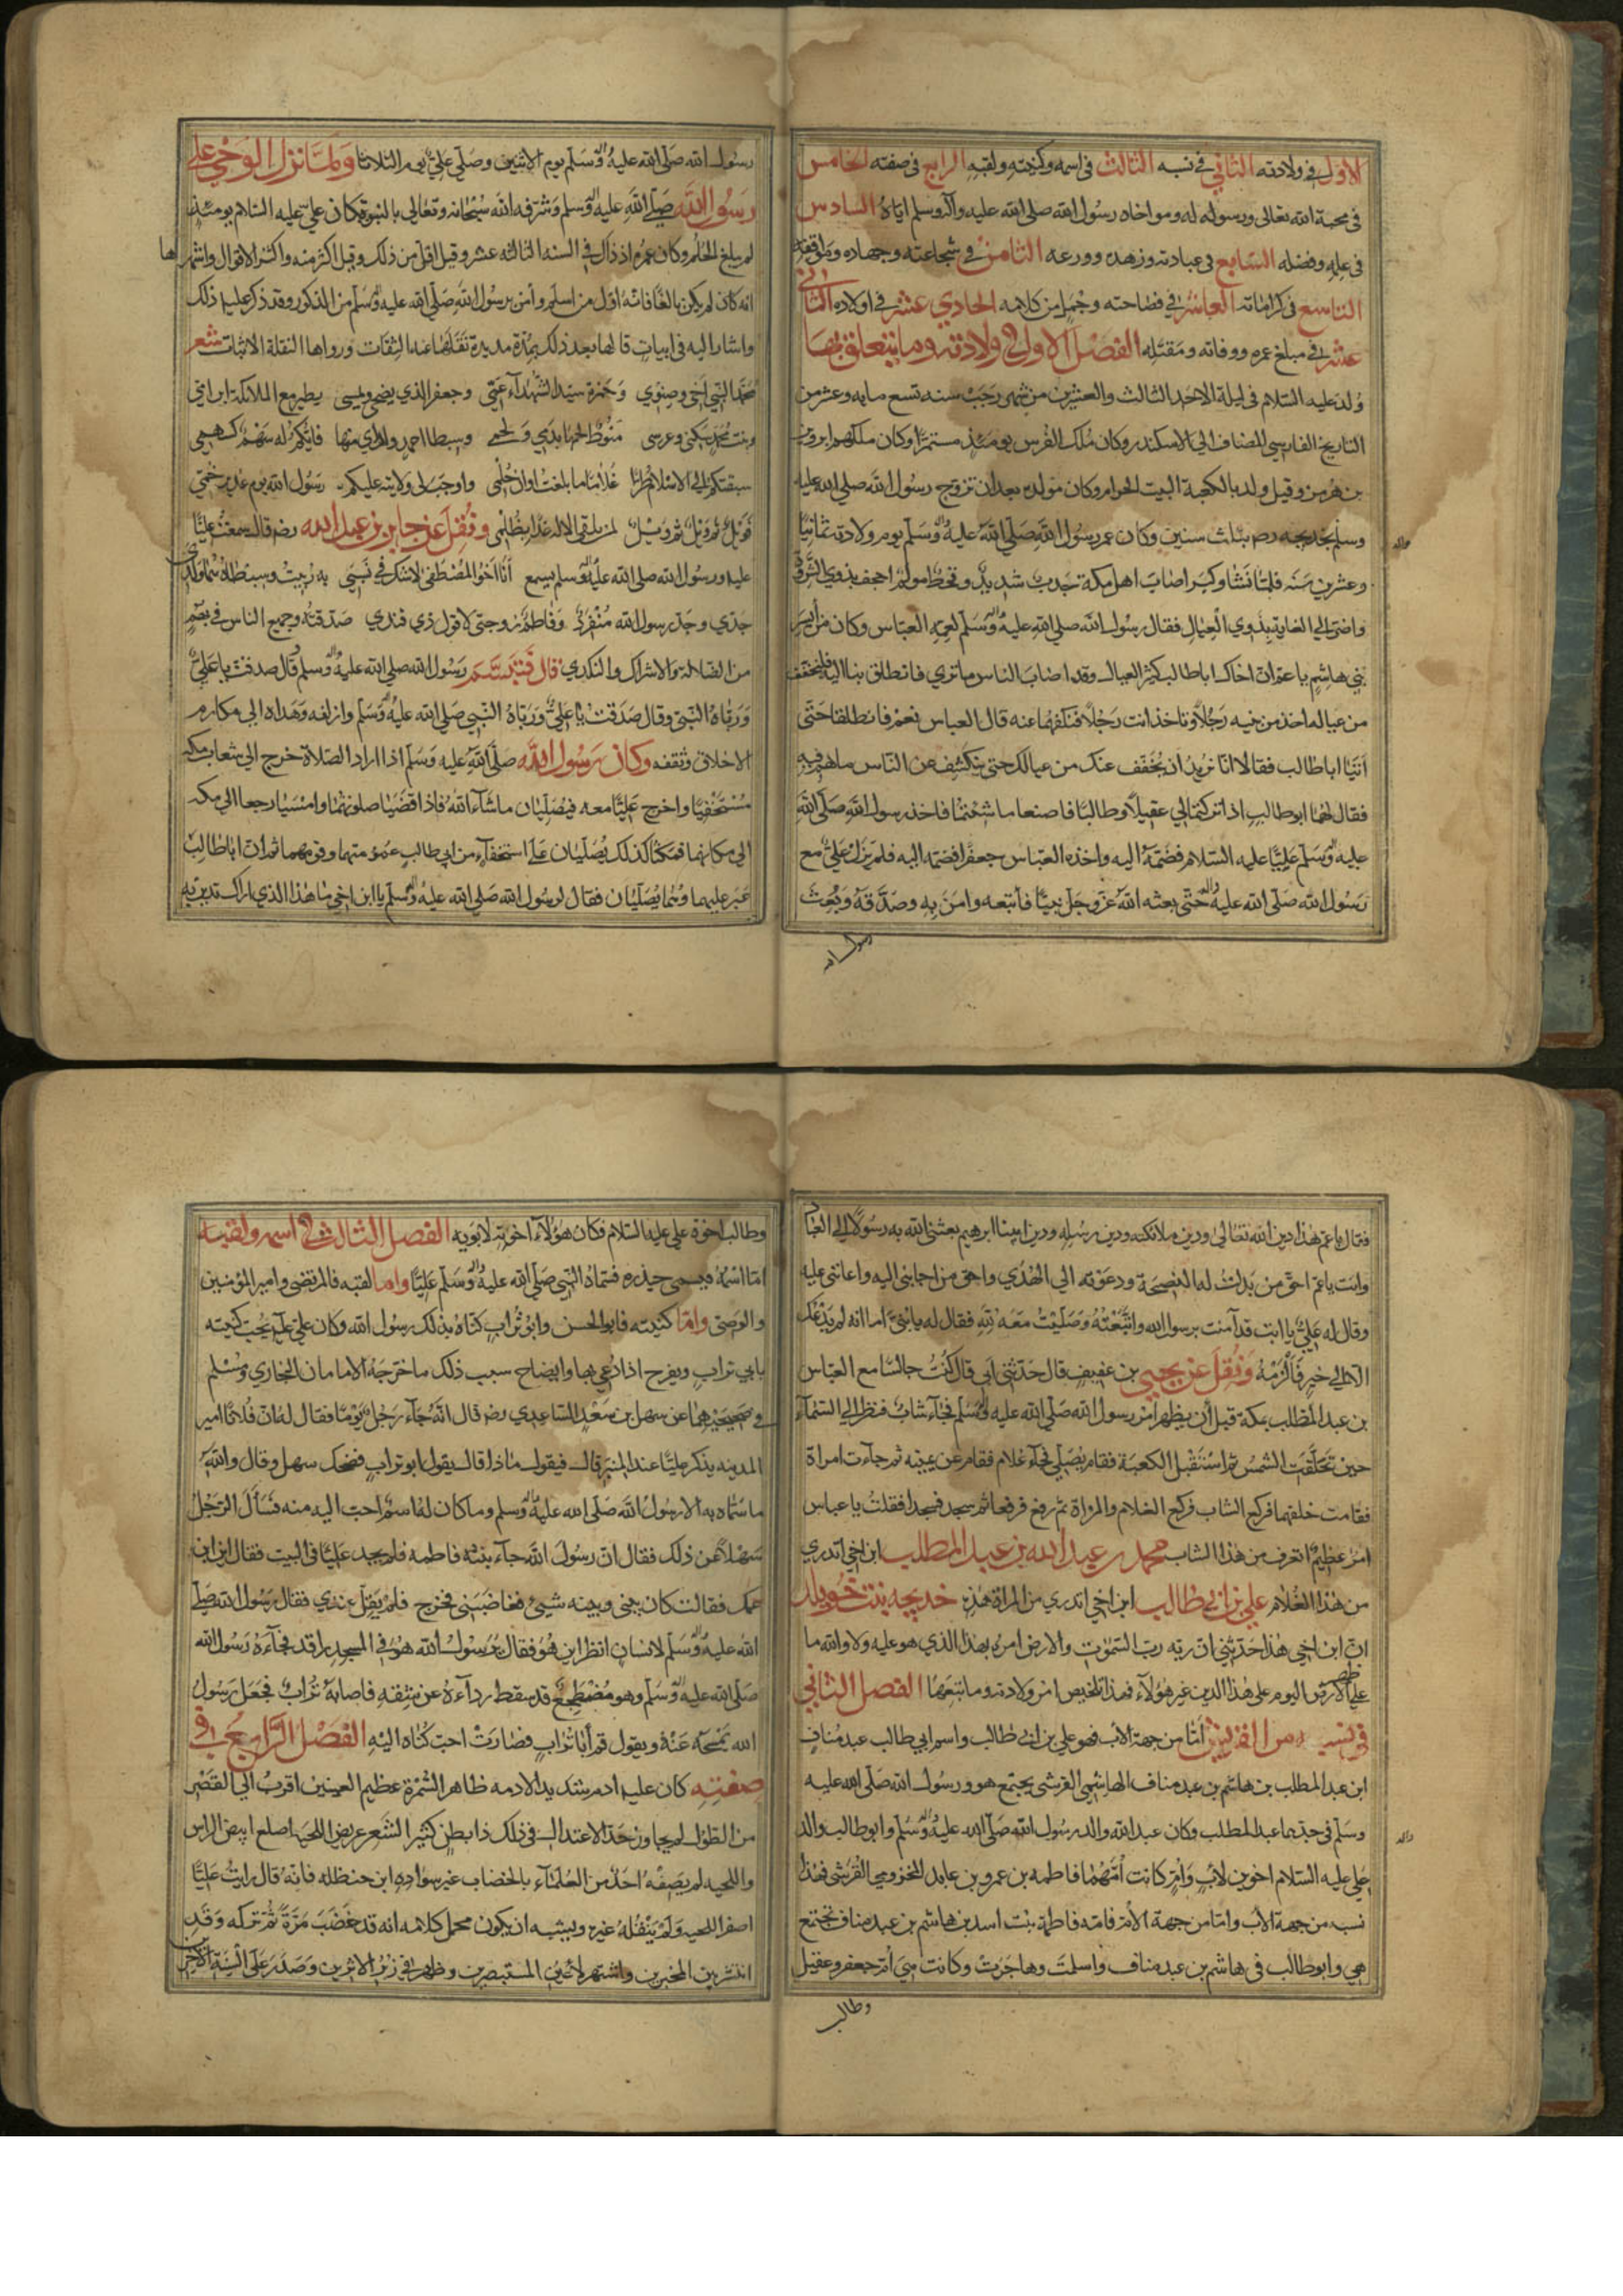 الاول في ولادته الثاني في نسبه الثالث في اسمه وكنيته ولقبه الرابع في صفته الخامس
في محبة الله تعالى ورسوله له ومواخاه رسول الله صلى الله عليه وآله وسلم اياه السادس
في علمه وفضله السابع في عبادته وزهده وورعه الثامن في شجاعته وجهاده ومواقفه
التاسع في كراماته العاشر في فصاحته وجمل من كلامه الحادي عشر في اولاده الثاني
عشر في مبلغ عمره ووفاته ومقتله الفصل الاول في ولادته وما يتعلق بها
ولد عليه السلام في ليلة الاحد الثالث والعشرين من شهر رجب سنه تسع مايه وعشر من
التاريخ الفارسي المضاف الي الاسكندر وكان ملك الفرس يومئذ مستمرا وكان ملكهم ابرويز
بن هرمز وقيل ولد بالكعبة البيت الحرام وكان مولده بعد ان تزوج رسول الله صلى الله عليه
وسلم بخديجه رضه بثلث سنين وكان عمر رسول الله صلى الله عليه وسلم يوم ولادته ثمانيا
وعشرين سنه فلما نشا وكبر اصاب اهل مكة جدب شديد وقحط مولم اجحف بذوي الثروة
واضر الي الغاية بذوي العيال فقال رسول الله صلى الله عليه وسلم لعمه العباس وكان من أيسر
بني هاشم يا عم ان اخاك ابا طالب كثير العيال وقد اصاب الناس ما تري فانطلق بنا اليه فلنخفف
من عياله اخذ من بنيه رجلا وتاخذ انت رجلا فنكفهما عنه قال العباس نعم فانطلقا حتى
أتيا ابا طالب فقالا انا نريد أن نخفف عنك من عيالك حتى ينكشف عن الناس ما هم فيه
فقال لهما ابو طالب اذا تركتما لي عقيلا وطالبا فاصنعا ما شئتما فاخذ رسول الله صلى الله
عليه وسلم عليا عليه السلام فضمه اليه واخذ العباس جعفرا فضمه اليه فلم يزل علي مع
رسول الله صلى الله عليه حتى بعثه الله عز وجل نبيا فأتبعه وامن به وصدقه وبعث
رسول الله صلى الله عليه وسلم يوم الاثنين وصلى علي يوم الثلاثا ولما نزل الوحي على
رسول الله صلى الله عليه وسلم وشرفه الله سبحانه وتعالى بالنبوة كان علي عليه السلام يومئذ
لم يبلغ الحلم وكان عمره اذ ذاك في السنه الثالثه عشر وقيل اقل من ذلك وقيل اكثر منه واكثر الاقوال واشهرها
انه كان لم يكن بالغا فانه اول من اسلم وأمن برسول الله صلى الله عليه وسلم من الذكور وقد ذكر عليه ذلك
واشار اليه في ابيات قالها بعد ذلك بمدة مديدة نقلها عنه الثقات ورواها النقلة الاثبات شعر
محمد النبي اخي وصنوي وحمزة سيد الشهدآء عمي وجعفر الذي يضحي ويمسي يطير مع الملائكة ابن امي
وبنت محمد سكني وعرسي منوط لحمها بدمي ولحمي وسبطا احمد ولداي منها فايكم له سهم كسهمي
سبقتكم الي الاسلام طرا غلاما ما بلغت اوان حلمي واوجب لي ولايته عليكم رسول الله يوم غدير خم
فويل ثم ويل ثم ويل لمن يلقى الاله غدا بظلمي ونقل عن جابر بن عبد الله رضه قال سمعت عليا
عليه ورسول الله صلى الله عليه وسلم يسمع أنا اخو المصطفى لا شك في نسبي به ربيت وسبطاه هما ولدي
جدي وجد رسول الله منفرد وفاطم زوجتي لا قول ذي فندي صدقته وجميع الناس في بهم
من الضلالة والاشراك والنكدي قال فتبسم رسول الله صلى الله عليه وسلم وقال صدقت يا علي
ورباه النبي وقال صدقت يا علي ورباه النبي صلى الله عليه وسلم وازلفه وهداه الي مكارم
الاخلاق وثقفه وكان رسول الله صلى الله عليه وسلم اذا اراد الصلاة خرج الي شعاب مكه
مستخفيا واخرج عليا معه فيصليان ماشآء الله فاذا قضيا صلوتهما وامسيا رجعا الي مكه
الي مكانهما فمكثا كذلك يصليان على استخفآء من ابي طالب عمومتهما وقومهما ثم ان ابا طالب
عبر عليهما وهما يصليان فقال لرسول الله صلى الله عليه وسلم يا ابن اخي ما هذا الذي اراك تدين به
رسول الله
فقال يا عم هذا دين الله تعالى ودين ملائكته ودين رسله ودين ابينا ابرهيم بعثني الله به رسولا الي العباد
وانت يا عم احق من بذلت له النصيحة ودعوته الي الهدي واحق من اجابني اليه واعانني عليه
وقال له علي يا ابت قد آمنت برسول الله واتبعته وصليت معه لله فقال له يا بني اما انه لم يدعك
الا الي خير فالزمه ونقل عن يحيى بن عفيف قال حدثني ابي قال كنت جالسا مع العباس
بن عبد المطلب بمكة قبل أن يظهر امر رسول الله صلى الله عليه وسلم فجآء شاب فنظر الي السمآء
حين تحلقت الشمس ثم استقبل الكعبة فقام يصلي فجآء غلام فقام عن يمينه ثم جآءت امراة
فقامت خلفهما فركع الشاب فركع الغلام والمراة ثم رفع فرفعا ثم سجد فسجدا فقلت يا عباس
امر عظيم اتعرف من هذا الشاب محمد بن عبد الله بن عبد المطلب ابن اخي اتدري
من هذا الغلام علي بن ابي طالب ابن اخي اتدري من المراة هذه خديجه بنت خويلد
ان ابن اخي هذا حدثني ان ربه رب السموات والارض امره بهذا الذي هو عليه ولا والله ما
على ظهر الارض اليوم على هذا الدين غير هؤلآء فهذا تلخيص امر ولادته وما يتبعها الفصل الثاني
في نسبه من الطرفين أما من جهة الأب فهو علي بن ابي طالب واسم ابي طالب عبد مناف
ابن عبد المطلب بن هاشم بن عبد مناف الهاشمي القرشي يجتمع هو ورسول الله صلى الله عليه
وسلم في جدهما عبد المطلب وكان عبد الله والد رسول الله صلى الله عليه وسلم وابو طالب والد
علي عليه السلام اخوين لأب وأم كانت أمهما فاطمه بن عمرو بن عايد المخزومي القرشي فهذا
نسبه من جهة الأب واما من جهة الأم فامه فاطمة بنت اسد بن هاشم بن عبد مناف تجتمع
هي وابو طالب في هاشم بن عبد مناف واسلمت وهاجرت وكانت هي أم جعفر وعقيل
وطالب اخوة علي عليه السلام فكان هؤلآء اخوته لابويه الفصل الثالث في اسمه ولقبه
اما اسمه فيسمى حيدره فسماه النبي صلى الله عليه وسلم عليا واما لقبه فالمرتضى وامير المؤمنين
والوصي واما كنيته فابو الحسن وابو تراب كناه بذلك رسول الله وكان علي علم يحب كنيته
بابي تراب ويفرح اذا دعي بها وايضاح سبب ذلك ما خرجه الامامان البخاري ومسلم
في صحيحيهما عن سهل بن سعد الساعدي رضه قال انه جآء رجل يوما فقال له ان فلانا امير
المدينه يذكر عليا عند المنبر قال فيقول ماذا قال يقول ابو تراب فضحك سهل وقال والله
ما سماه به الا رسول الله صلى الله عليه وسلم وما كان له اسم احب اليه منه فسأل الرجل
سهلا عن ذلك فقال ان رسول الله جآء بنته فاطمه فلم يجد عليا في البيت فقال اين ابن
عمك فقالت كان بيني وبينه شيئ فغاضبني فخرج فلم يقل عندي فقال رسول الله صلى
الله عليه وسلم لانسان انظر اين هو فقال يا رسول الله هو في المسجد راقد فجآءه رسول الله
صلى الله عليه وسلم وهو مضطجع قد سقط ردآءه عن شقه فاصابه تراب فجعل رسول
الله يمسحه عنه ويقول قم أبا تراب فصارت احب كناه اليه الفصل الرابع في
صفته كان عليه ادم شديد الادمه ظاهر السمرة عظيم العينين اقرب الي القصر
من الطول لم يجاوز حد الاعتدال في ذلك ذا بطن كثير الشعر عريض اللحيه اصلع ابيض الراس
واللحيه لم يصفه احد من العلمآء بالخضاب غير سواده ابن حنظله فانه قال رايت عليا
اصفر اللحيه ولم ينقله غيره ويشبه ان يكون محمل كلامه انه قد خضب مرة ثم تركه وقد
انتشر بين المخبرين واشتهر لأعين المستبصرين وظهر في زبر الاثرين وصدر على ألسنة الاخرين
وطالب